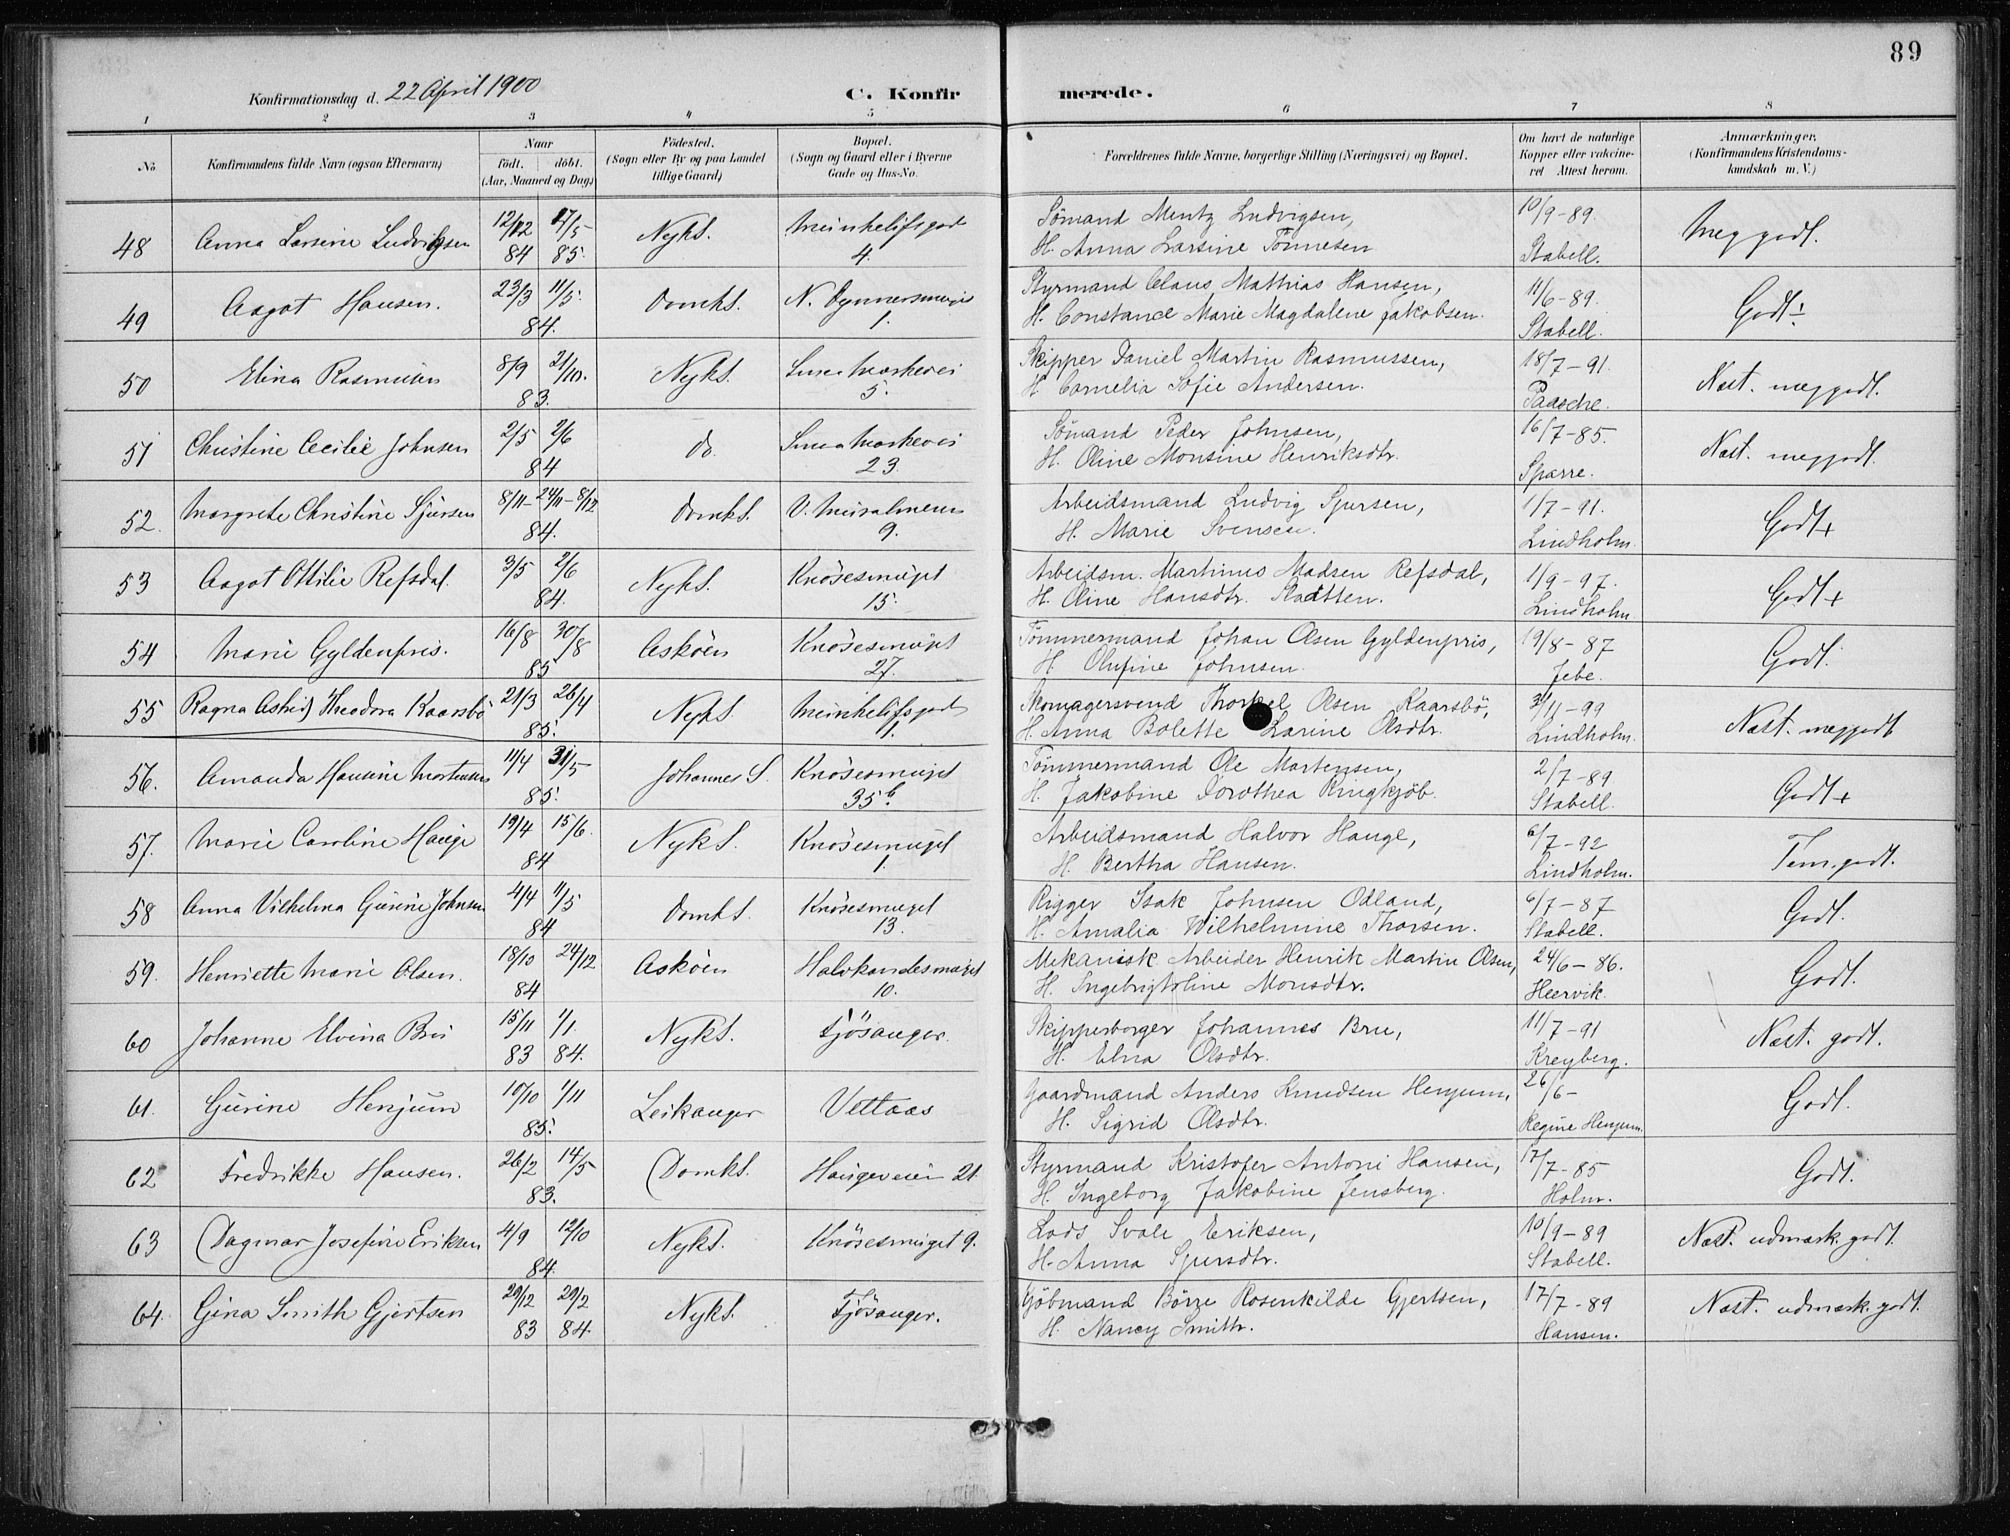 89
Konfirmationsdag d. 22 April 1900
C. Konfirmerede.
1 2 3 4 5 6 7 8
No
Konfirmandens fulde Navn (ogsaa Efternavn)
Naar
födt. döbt.
(Aar, Maaned og Dag)
Födested.
(Sogn eller By og paa Landet
tillige Gaard)
Bopæl.
(Sogn og Gaard eller i Byerne
Gade og Hus-No.
Forældrenes fulde Navne, borgerlige Stilling (Næringsvei) og Bopæl.
Om havt de naturlige
Kopper eller vakcine-
ret Attest herom.
Anmærkninger.
(Konfirmandens Kristendoms-
kundskab m. V.)
48 Anna Larsine Ludvigsen 12/12 84 17/5 85. Nykk. 4. Sömand Mentz Ludvigsen, H. Anna Larsine Tönnesen 10/9-89. Stabell. Meg godt.
49 Aagot Hansen. 23/3 11/5. 84. Domk. 1. Styrmand Claus Mathias Hansen, H. Constance Marie Magdalene Jakobsen. 11/6-89. Stabell. Godt
50 Elina Rasmussen 8/9 21/10. 83. Nykk. 5. Skipper Daniel Martin Rasmussen, H. Cornelia Sofie Andersen. 18/7-91. Paasche. Næst. meg godt.
51 Christine Cecilie Johnsen 2/5 2/6 84 do. 23. Sömand Peder Johnsen, H. Oline Monsine Henriksdtr. 16/7-85. Sparre. Næst. meg godt.
52. Margrete Christine Sjursen 8/11 - 24/11 - 8/12 84. Domk. 9. Arbeidsmand Ludvig Sjursen, H. Marie Svensen. 1/7-91. Lindholm. Godt+
53 Aagot Ottilie Refsdal. 3/5 2/6 84. Nykk. Knösesmuget 15. Arbeidsm. Martinus Madsen Refsdal, H. Oline Hansdtr. 1/9-97. Lindholm Godt+
54 Marie Gyldenpris. 16/8 30/8 85 Asköen Knösesmuget 27. Tömmermand Johan Olsen Gyldenpris, H. Olufine Johnsen. 19/8-87 Jebe. Godt.
55 Ragna Astrid Theodora Kaarsbö 21/3 26/4 85. Nykk. 1. Skomagersvend Thorkel Olsen Kaarsbö, H. Anna Bolette Larine Olsdtr. 3/11-99 Lindholm. Næst. meg godt
56. Amanda Hansine Mortensen 11/4 31/5 85. Johannes K. Knösesmuget 35b. Tömmermand Ole Martensen, H. Jakobine Dorothea Ringkjöb. 2/7-89 Stabell. Godt+
57. Marie Caroline Hauge 19/4 15/6. 84 Nykk. Knösesmuget 1. Arbeidsmand Halvor Hauge, H. Bertha Hansen. 6/7-92 Lindholm. Tem. godt.
58 Anna Vilhelmina Gurine Johnsen 4/4 11/5 84 Domk. Knösesmuget 13. Rigger Isak Johnsen Odland, H. Amalia Wilhelmine Thorsen. 6/7-87 Stabell. Godt.
59. Henriette Marie Olsen. 18/10 24/12 84 Asköen 10. Mekanisk Arbeider Henrik Martin Olsen, H. Ingebrigtoline Monsdtr. 24/6-86. Heervik. Godt.
60 Johanne Elvina Bru 15/11 83 1/1. 84. Nykk. Fjösanger. Skipperborger Johannes Bru, H. Elna Olsdtr. 11/7-91 Kreyberg. Næst. godt.
61. Gurine Henjum 10/10 1/11 85. Leikanger Vetlaas Gaardmand Anders Knudsen Henjum, H. Sigrid Olsdtr. 26/6- Regine Henjum. Godt.
62 Fredrikke Hansen. 26/2 14/5 83. Domk. Haugeveien 21. Styrmand Kristofer Antoni Hansen, H. Ingeborg Jakobine Jensberg. 17/7-85 Holm. Godt.
63 Dagmar Josefine Eriksen 4/9 12/10 84. Nykk. Knösesmuget 9. Lods Svale Eriksen, H. Anna Sjursdtr. 10/9-89 Stabell. Næst. udmærk. godt.
64. Gina Smith Gjertsen 29/12 83 29/2 84. Nykk. Fjösanger. Gjöbmand Börre Rosenkilde Gjertsen, H. Nancy Smith. 17/7-89 Hansen. Næst. udmærk. godt.